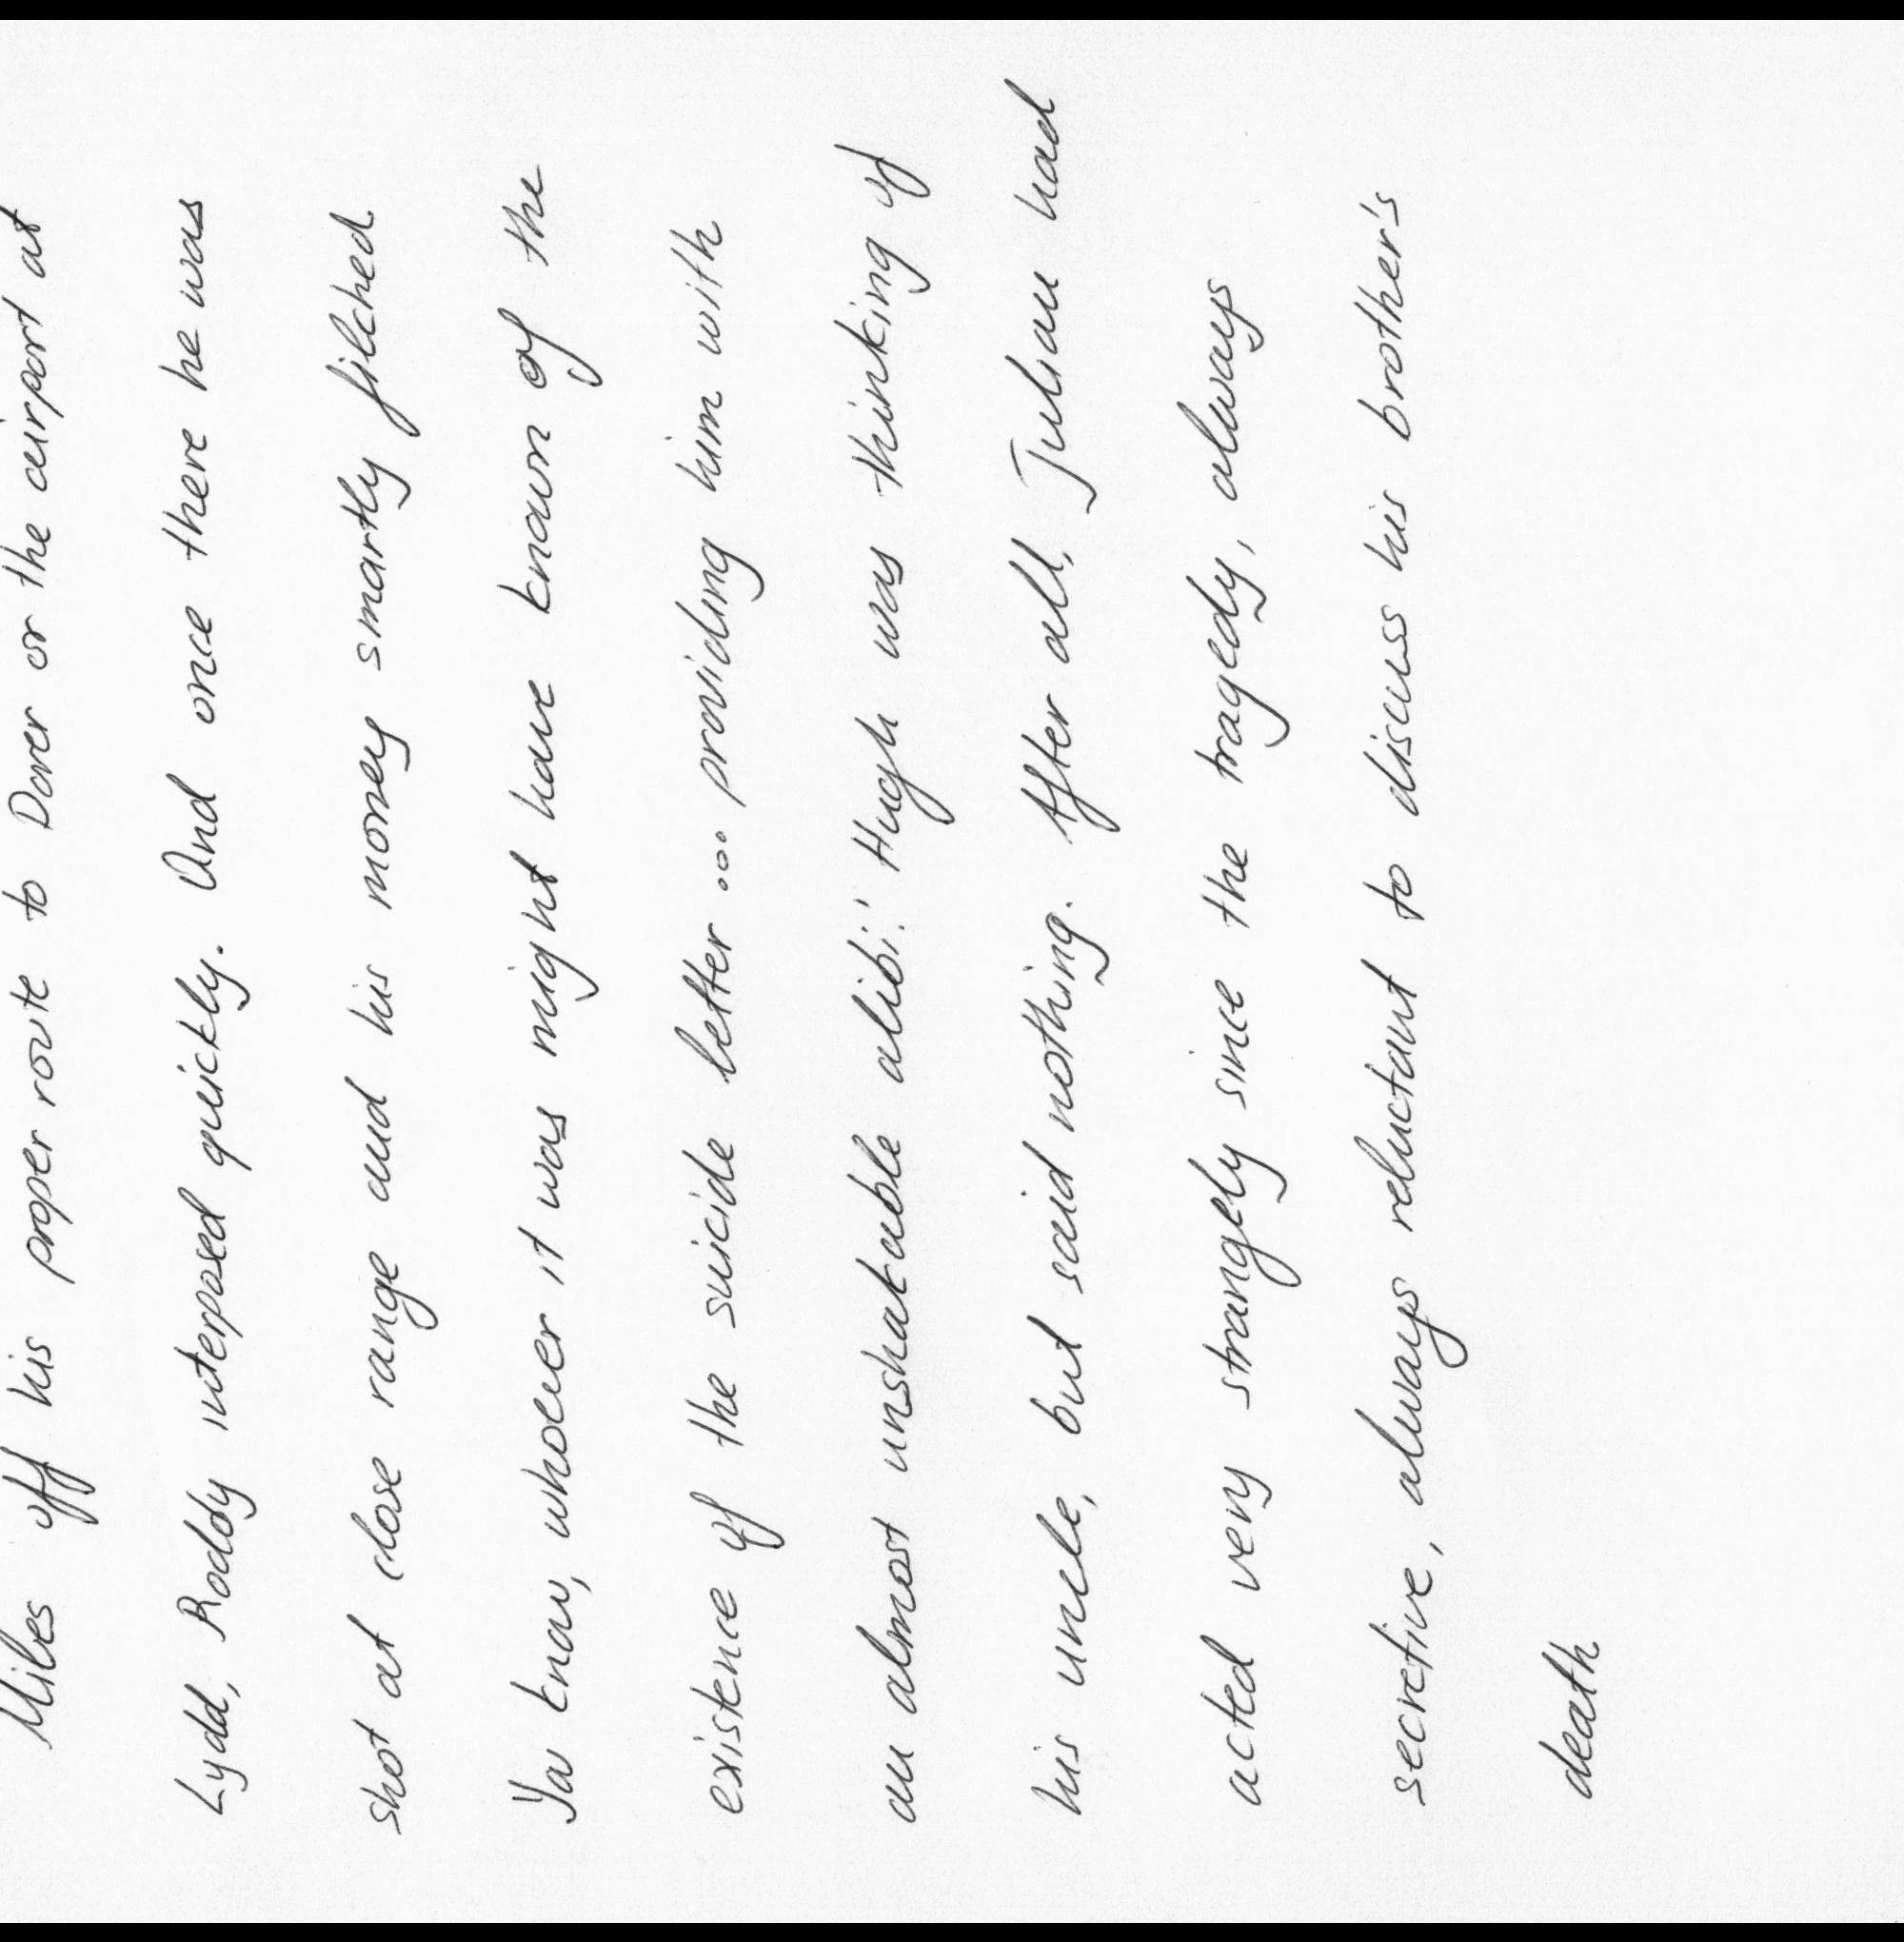 Miles off his proper route to Dover or the airport at
Lydd, Roddy interposed quickly. And once there he was
shot at close range and his money smartly filched
'You know, whoever it was might have known of the
existence of the suicide letter ... providing him with
an almost unshakable alibi!' Hugh was thinking of
his uncle, but said nothing. After all, Julian had
acted very strangely since the tragedy, always
secretive, always reluctant to discuss his brother's
death